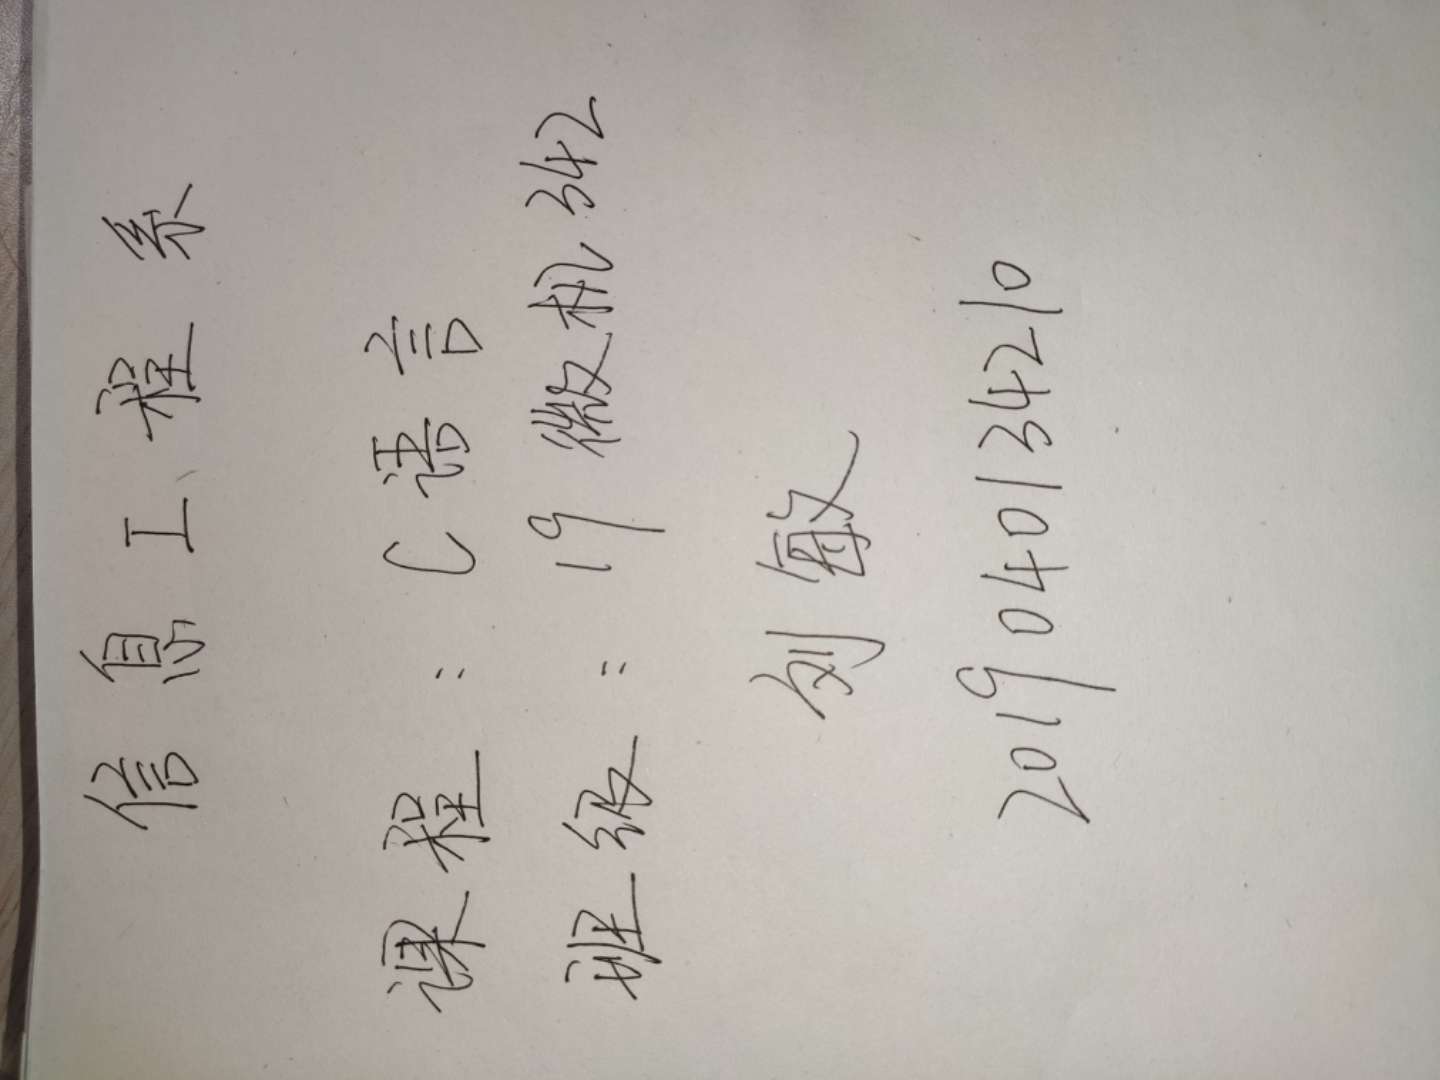 信息工程系
课程：C语言
班级：19微机342
刘敏
2019040134210